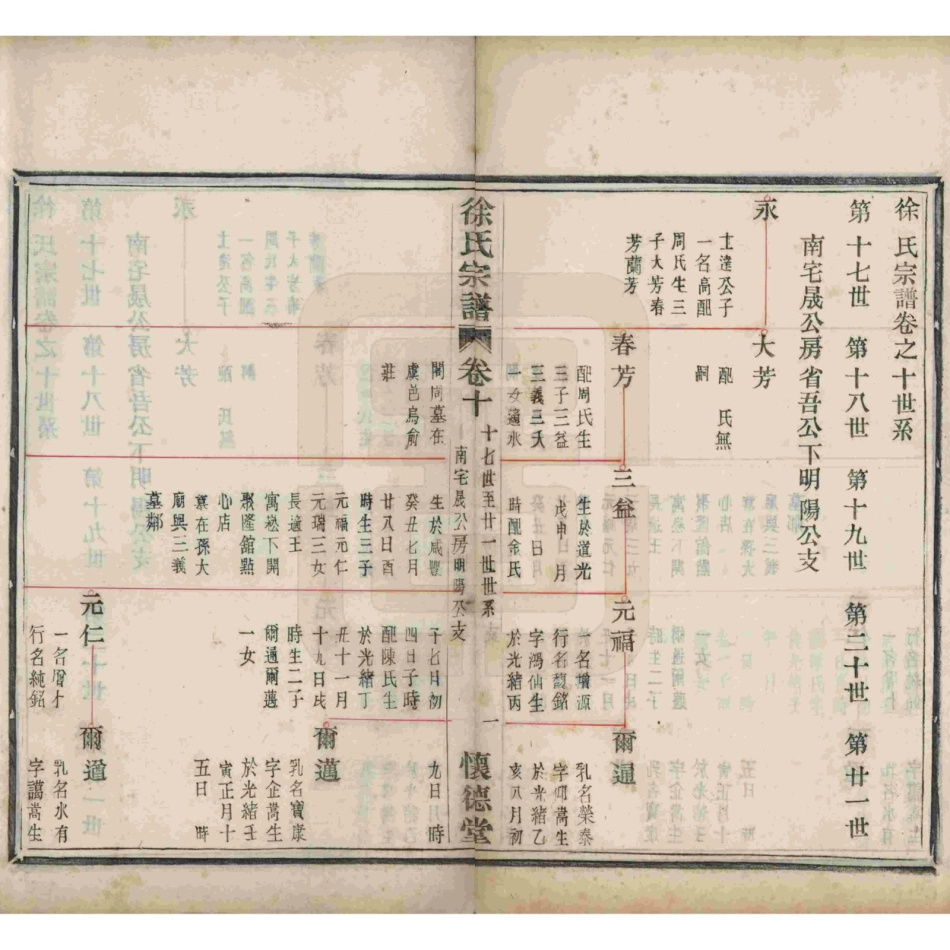 徐氏宗譜卷之十世系
第十七世 第十八世 第十九世 第二十世 第廿一世
南宅晟公房省吾公下明陽公支
永
士達公子
一名高配
周氏生三
子大芳春
芳蘭芳
大芳
配 氏無
嗣
春芳
配周氏生
三子三益
三義三大
一女適永
閣周墓在
虞邑烏俞
莊
三益
生於道光
戊申 月
 日
時配金氏
生於咸豐
癸丑七月
廿八日酉
時生三子
元福元仁
元瑞三女
長適王
寓懋下開
聚隆館點
心店
墓在孫大
廟興三義
墓鄰
元福
行名馥銘
字鴻仙生
於光緒丙
子七月初
四日子時
配陳氏生
於光緒丁
丑十一月
十九日戌
時生二子
爾適爾邁
一女
元仁
行名純銘
爾暹
乳名榮泰
字卿嵩生
於光緒乙
亥八月初
九日 時
爾邁
乳名寶康
字企嵩生
於光緒壬
寅正月十
五日 時
爾道
乳名水有
字謨嵩生
徐氏宗譜 卷十
十七世至廿一世世系
南宅晟公房明陽公支
一
懷德堂